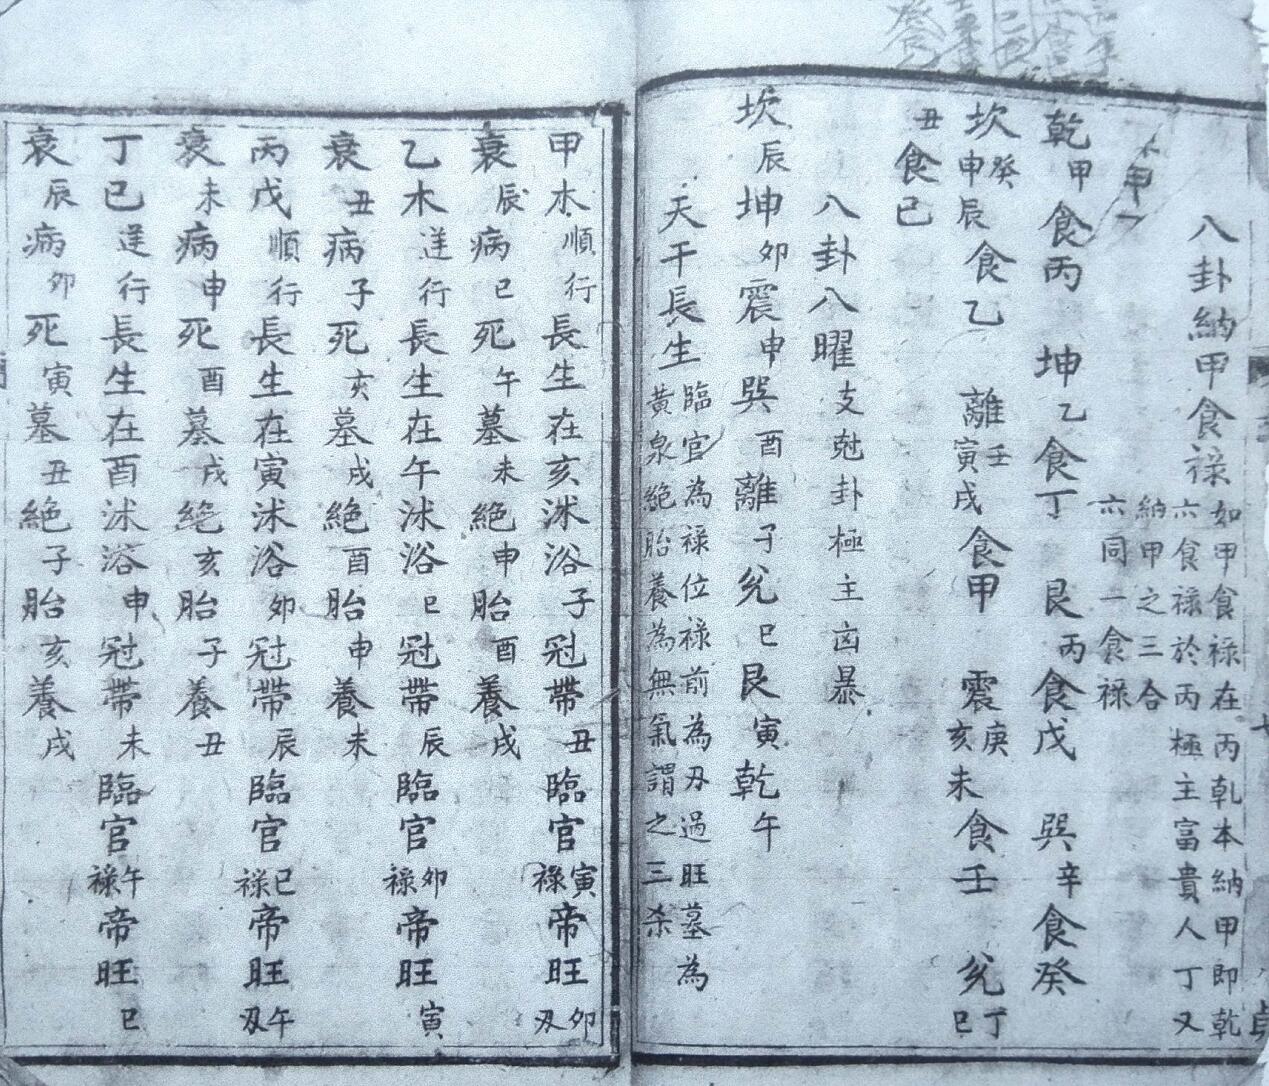 八卦納甲食祿如甲食祿在丙乹本納甲即乾
六食祿於丙極主富貴人丁又
納甲之三合
六同一食祿
乾甲食丙 坤乙食丁 艮丙食戊 巽辛食癸
坎癸申辰食乙 離壬寅戌食甲 震庚亥未食壬 兌丁巳
丑食己
八卦八曜支尅卦極主凶暴
坎辰坤卯震申巽酉離子兌巳艮寅乾午
天干長生臨官為祿位祿前為刃過旺墓為
黃泉絕胎養為無氣謂之三杀
甲木順行長生在亥沐浴子冠帶丑臨官寅祿帝旺卯刃
衰辰病巳死午墓未絕申胎酉養戌
乙木逆行長生在午沐浴巳冠帶辰臨官卯祿帝旺寅
衰丑病子死亥墓戌絕酉胎申養未
丙戊順行長生在寅沐浴卯冠帶辰臨官巳祿帝旺午刃
衰未病申死酉墓戌絕亥胎子養丑
丁巳逆行長生在酉沐浴申冠帶未臨官午祿帝旺巳
衰辰病卯死寅墓丑絕子胎亥養戌